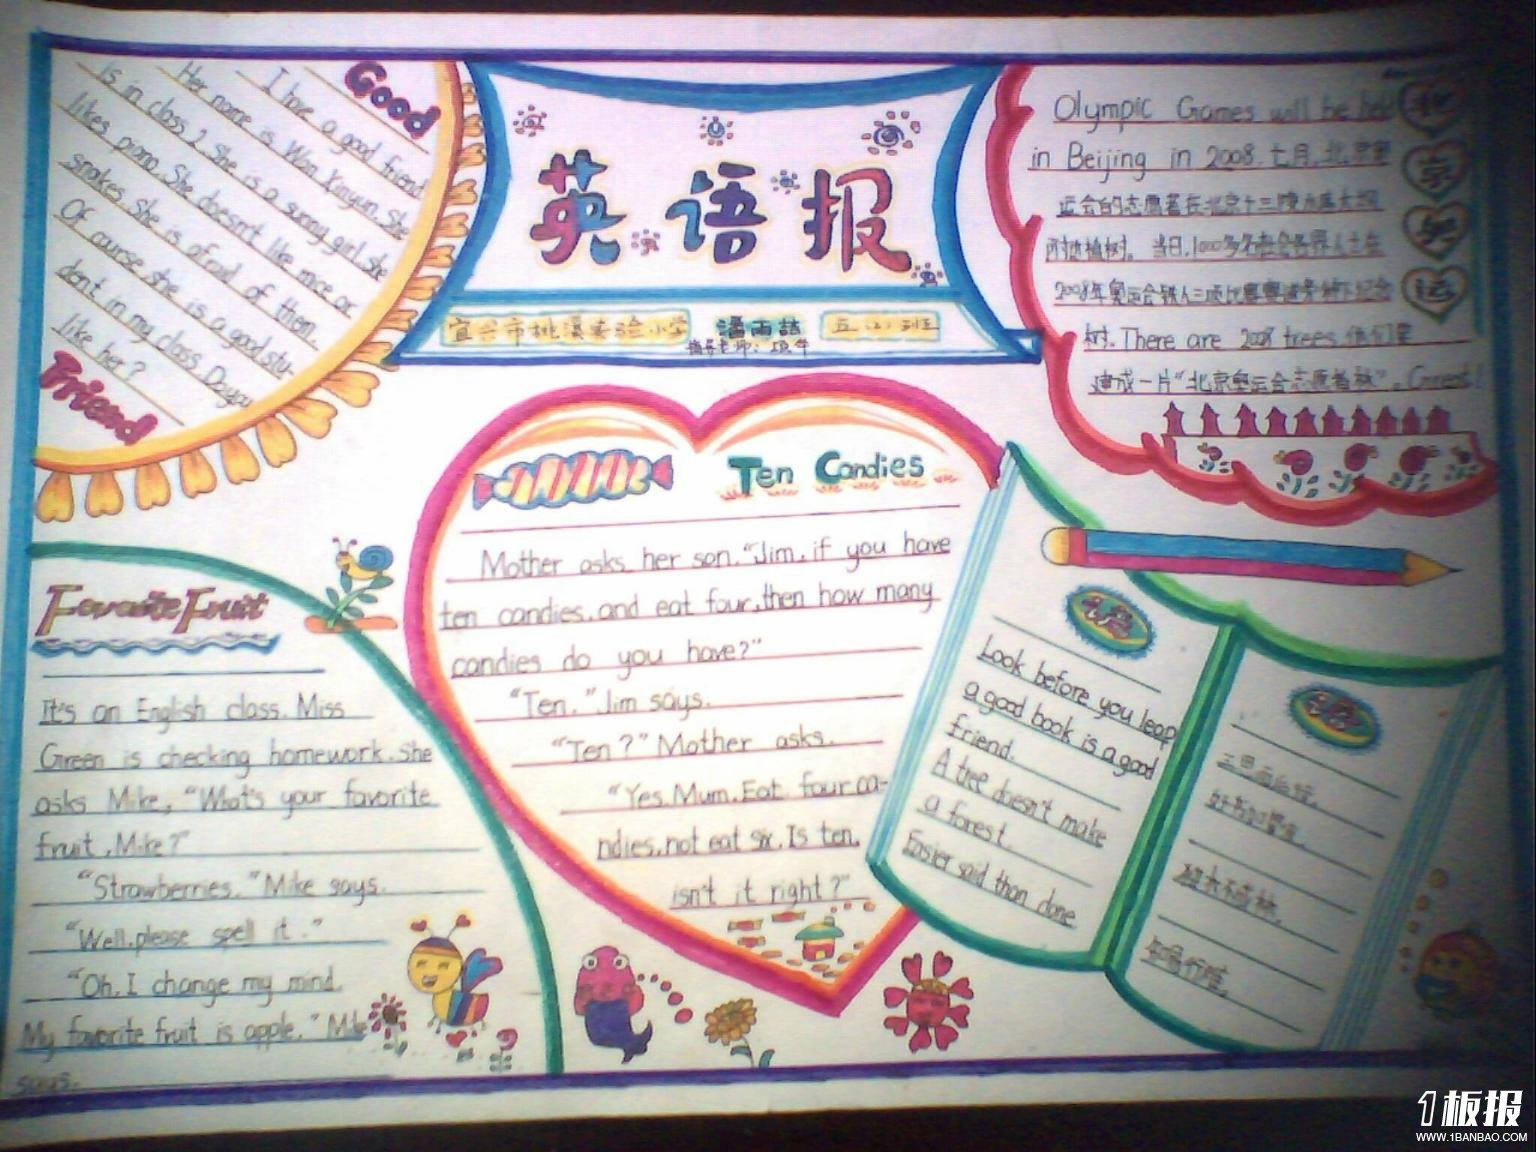 Good
I have a good friend.
Her name is Wan Xinyun. She
is in class 2. She is a sunny girl. She
likes piano. She doesn't like mice or
snakes. She is afraid of them.
Of course she is a good stu-
dent in my class. Do you
like her?
Friend
英语报
宜兴市桃溪实验小学 潘雨喆 五(2)班
指导老师:
Olympic Games will be held
in Beijing in 2008. 七月,北京奥
运会的志愿者在北京十三陵水库大坝
附近植树。当日,1000多名社会各界人士在
2008年奥运会铁人三项比赛赛道旁种下纪念
树. There are 2008 trees.他们要
建成一片“北京奥运会志愿者林”. Great!
北
京
奥
运
Ten Candies
Mother asks her son. "Jim, if you have
ten candies, and eat four, then how many
candies do you have?"
"Ten." Jim says.
"Ten?" Mother asks.
"Yes, Mum. Eat four ca-
ndies, not eat six. Is ten,
isn't it right?"
Favoraite Fruit
It's an English class. Miss
Green is checking homework. She
asks Mike, "What's your favorite
fruit, Mike?"
"Strawberries." Mike says.
"Well, please spell it."
"Oh, I change my mind.
My favorite fruit is apple." Mike
says.
Look before you leap
a good book is a good
friend.
A tree doesn't make
a forest.
Easier said than done
三思而后行.
好书如挚友.
独木不成林.
知易行难.
1板报
WWW.1BANBAO.COM